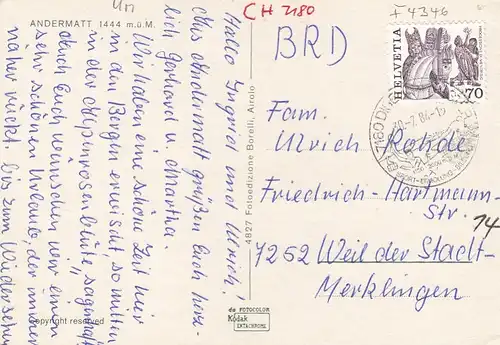 Uri
CH 7180
F 4346
ANDERMATT 1444 m.ü.M.
Hallo Ingrid und Ulrich!
Aus Andermatt grüßen Euch herz-
lich Gerhard u. Martha.
Wir haben eine schöne Zeit hier
in den Bergen erwischt, so mitten
in der Alpenrosenblüte, sagenhaft
Auch Euch wünschen wir einen
sehr schönen Urlaub, der immer
näher rückt. bis zum Wiedersehen
4827 Fotoedizione Borelli, Airolo
de FOTOCOLOR
Kodak
EKTACHROME
copyright reserved
BRD
HELVETIA
70
7180 DI
20-7.86-1
Fam.
Ulrich Rohde
Friedrich-Hartmann-
Str. 14
7252 Weil der Stadt-
Merklingen